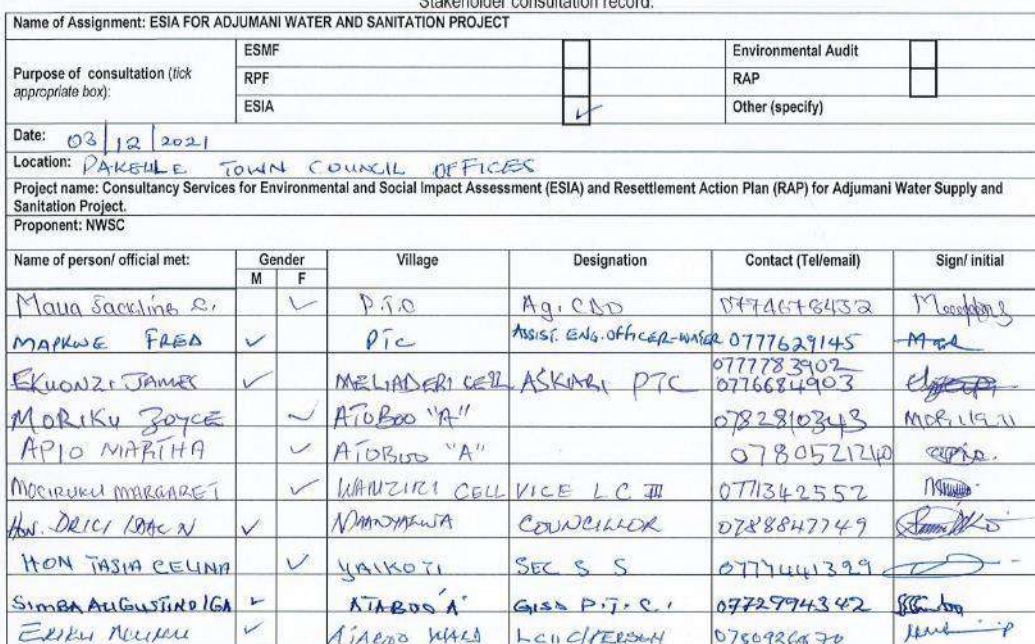 Stakeholder consultation record.
Name of Assignment: ESIA FOR ADJUMANI WATER AND SANITATION PROJECT
Purpose of consultation (tick appropriate box):
ESMF Environmental Audit
RPF RAP
ESIA ✓ Other (specify)
Date: 03/12/2021
Location: PAKELLE TOWN COUNCIL OFFICES
Project name: Consultancy Services for Environmental and Social Impact Assessment (ESIA) and Resettlement Action Plan (RAP) for Adjumani Water Supply and
Sanitation Project.
Proponent: NWSC
Name of person/ official met: Gender Village Designation Contact (Tel/email) Sign/ initial
M F
Maua Jackline ✓ P.T.C Ag. CDO 0774678432
FRED ✓ PTC ASSIST. ENG. OFFICER-WATER 0777629145
0777783902
EKUONZI JAMES ✓ MELIADERI CELL ASKIARI PTC 0776684903
MORIKU ZOYCE ✓ ATOBOO "A" 0782810343
APIO MARTHA ✓ ATOBOO "A" 0780521240
MARGARET ✓ CELL VICE LC III 0771342552
HON. DRICI ✓ COUNCILLOR 0788847749
HON TASIA CELINA ✓ YAIKOTI SEC S S
SIMBA AUGUSTINO IGA ✓ ATABOO 'A' GISO P.T.C. 0772994342
✓ WARD